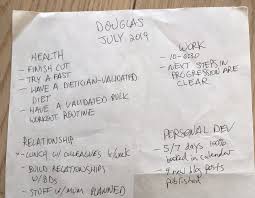 DOUGLAS
JULY 2019
HEALTH
- FINISH CUT
- TRY A FAST
- HAVE A DIETICIAN-VALIDATED
DIET
- HAVE A VALIDATED BULK
WORKOUT ROUTINE
WORK
- NEXT STEPS IN
PROGRESSION ARE
CLEAR
RELATIONSHIP
- LUNCH W/ COLLEAGUES
- BUILD RELATIONSHIPS
W/ BDs
- STUFF W/ MUM PLANNED
PERSONAL DEV
- 5/7 days
booked in calendar
posts
published